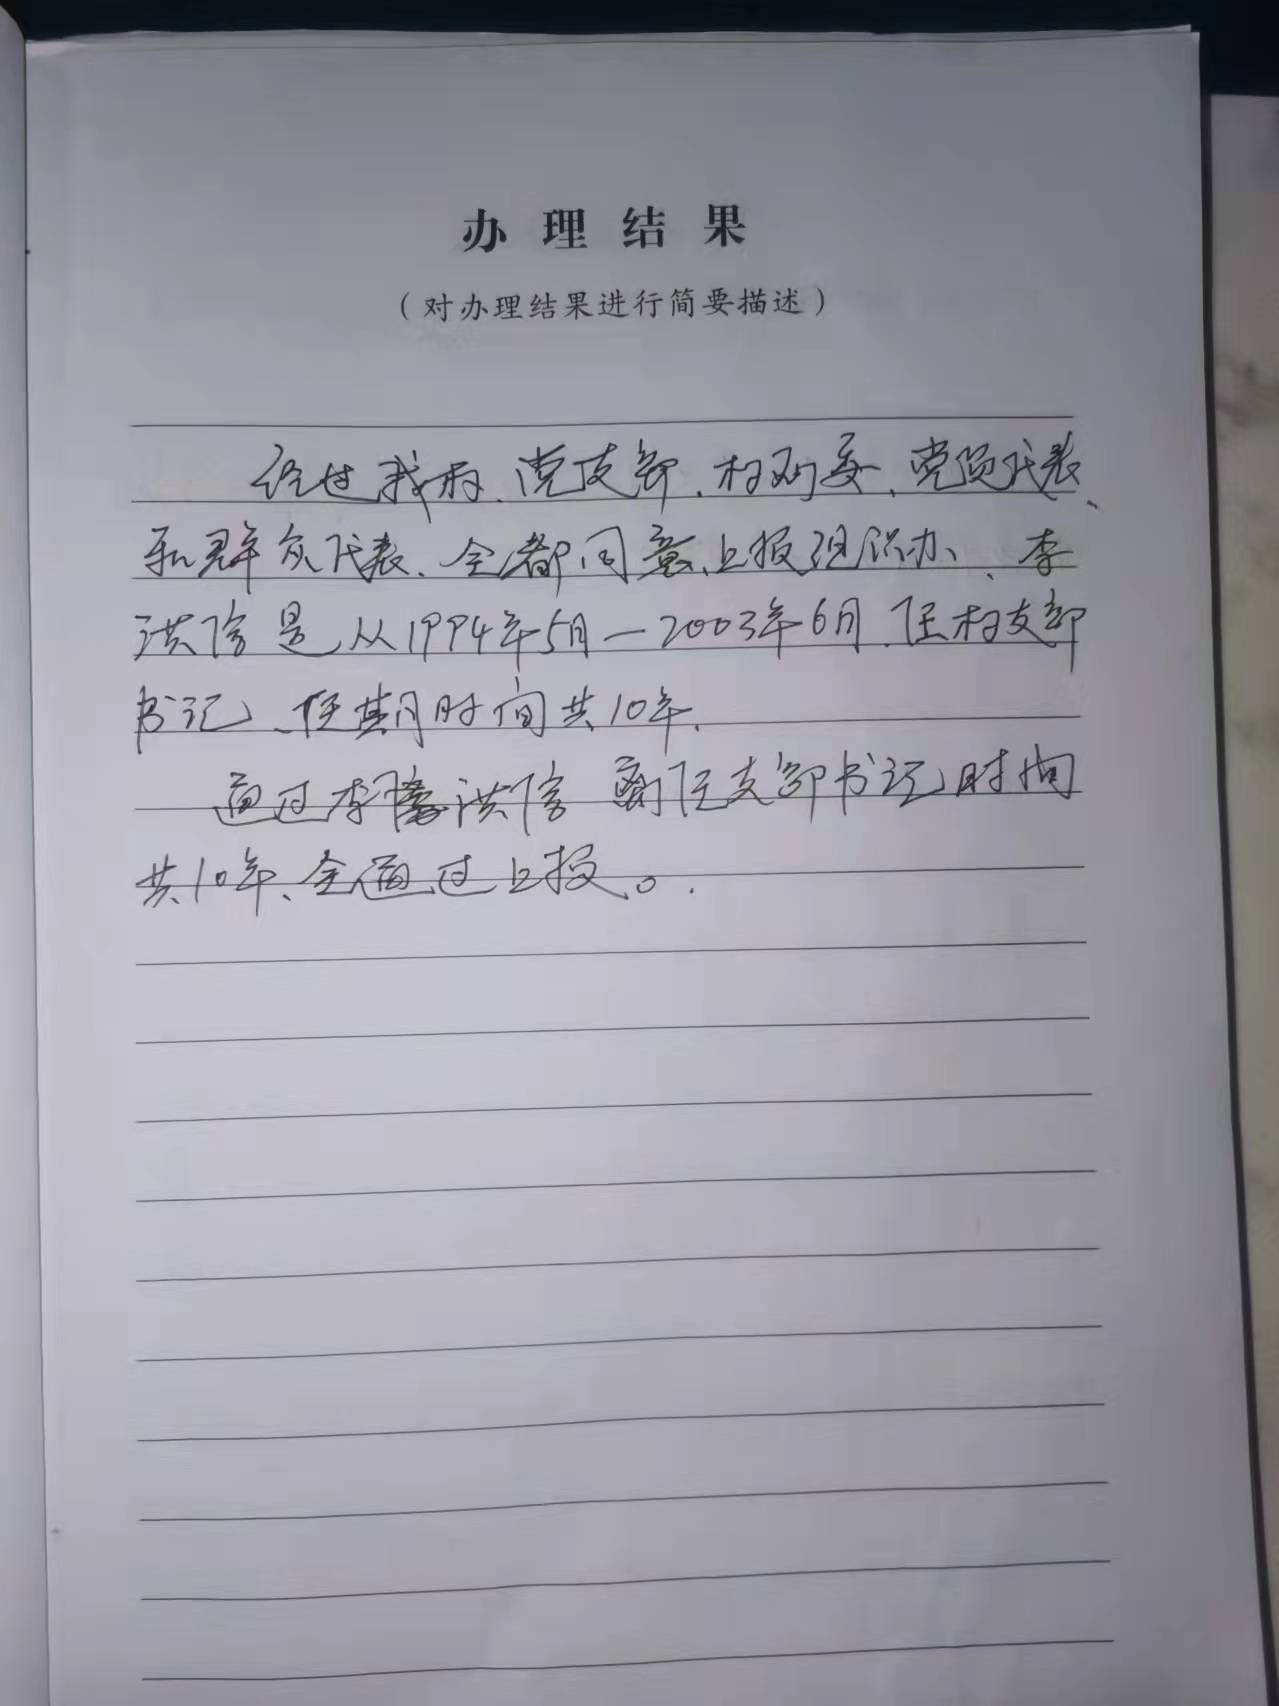 办理结果
（对办理结果进行简要描述）
经过我村、党支部、村两委、党员代表、
和群众代表、全都同意上报组织办、李
洪信是从1994年5月—2003年6月、任村支部
书记、任其月时间共10年.
通过李洪信 任支部书记时间
共10年、全通过上报。.